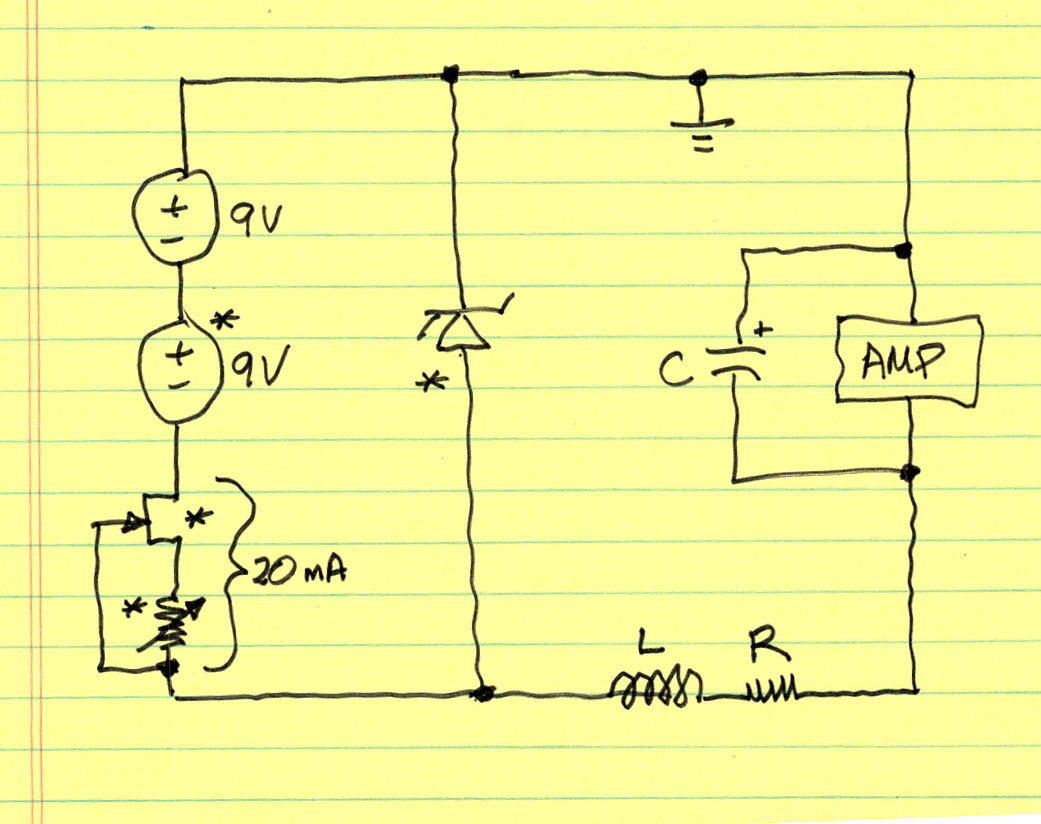 +
−
9V
*
+
−
9V
*
*
20 mA
*
*
+
C
AMP
L
R